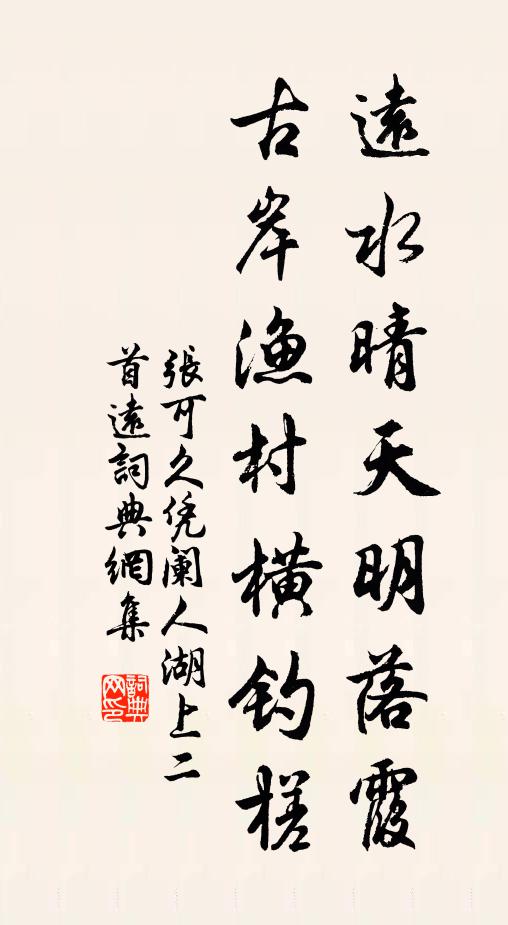 遠水晴天明落霞
古岸漁村橫釣槎
張可久凭阑人湖上二
首遠詞典網集
詞典
网印